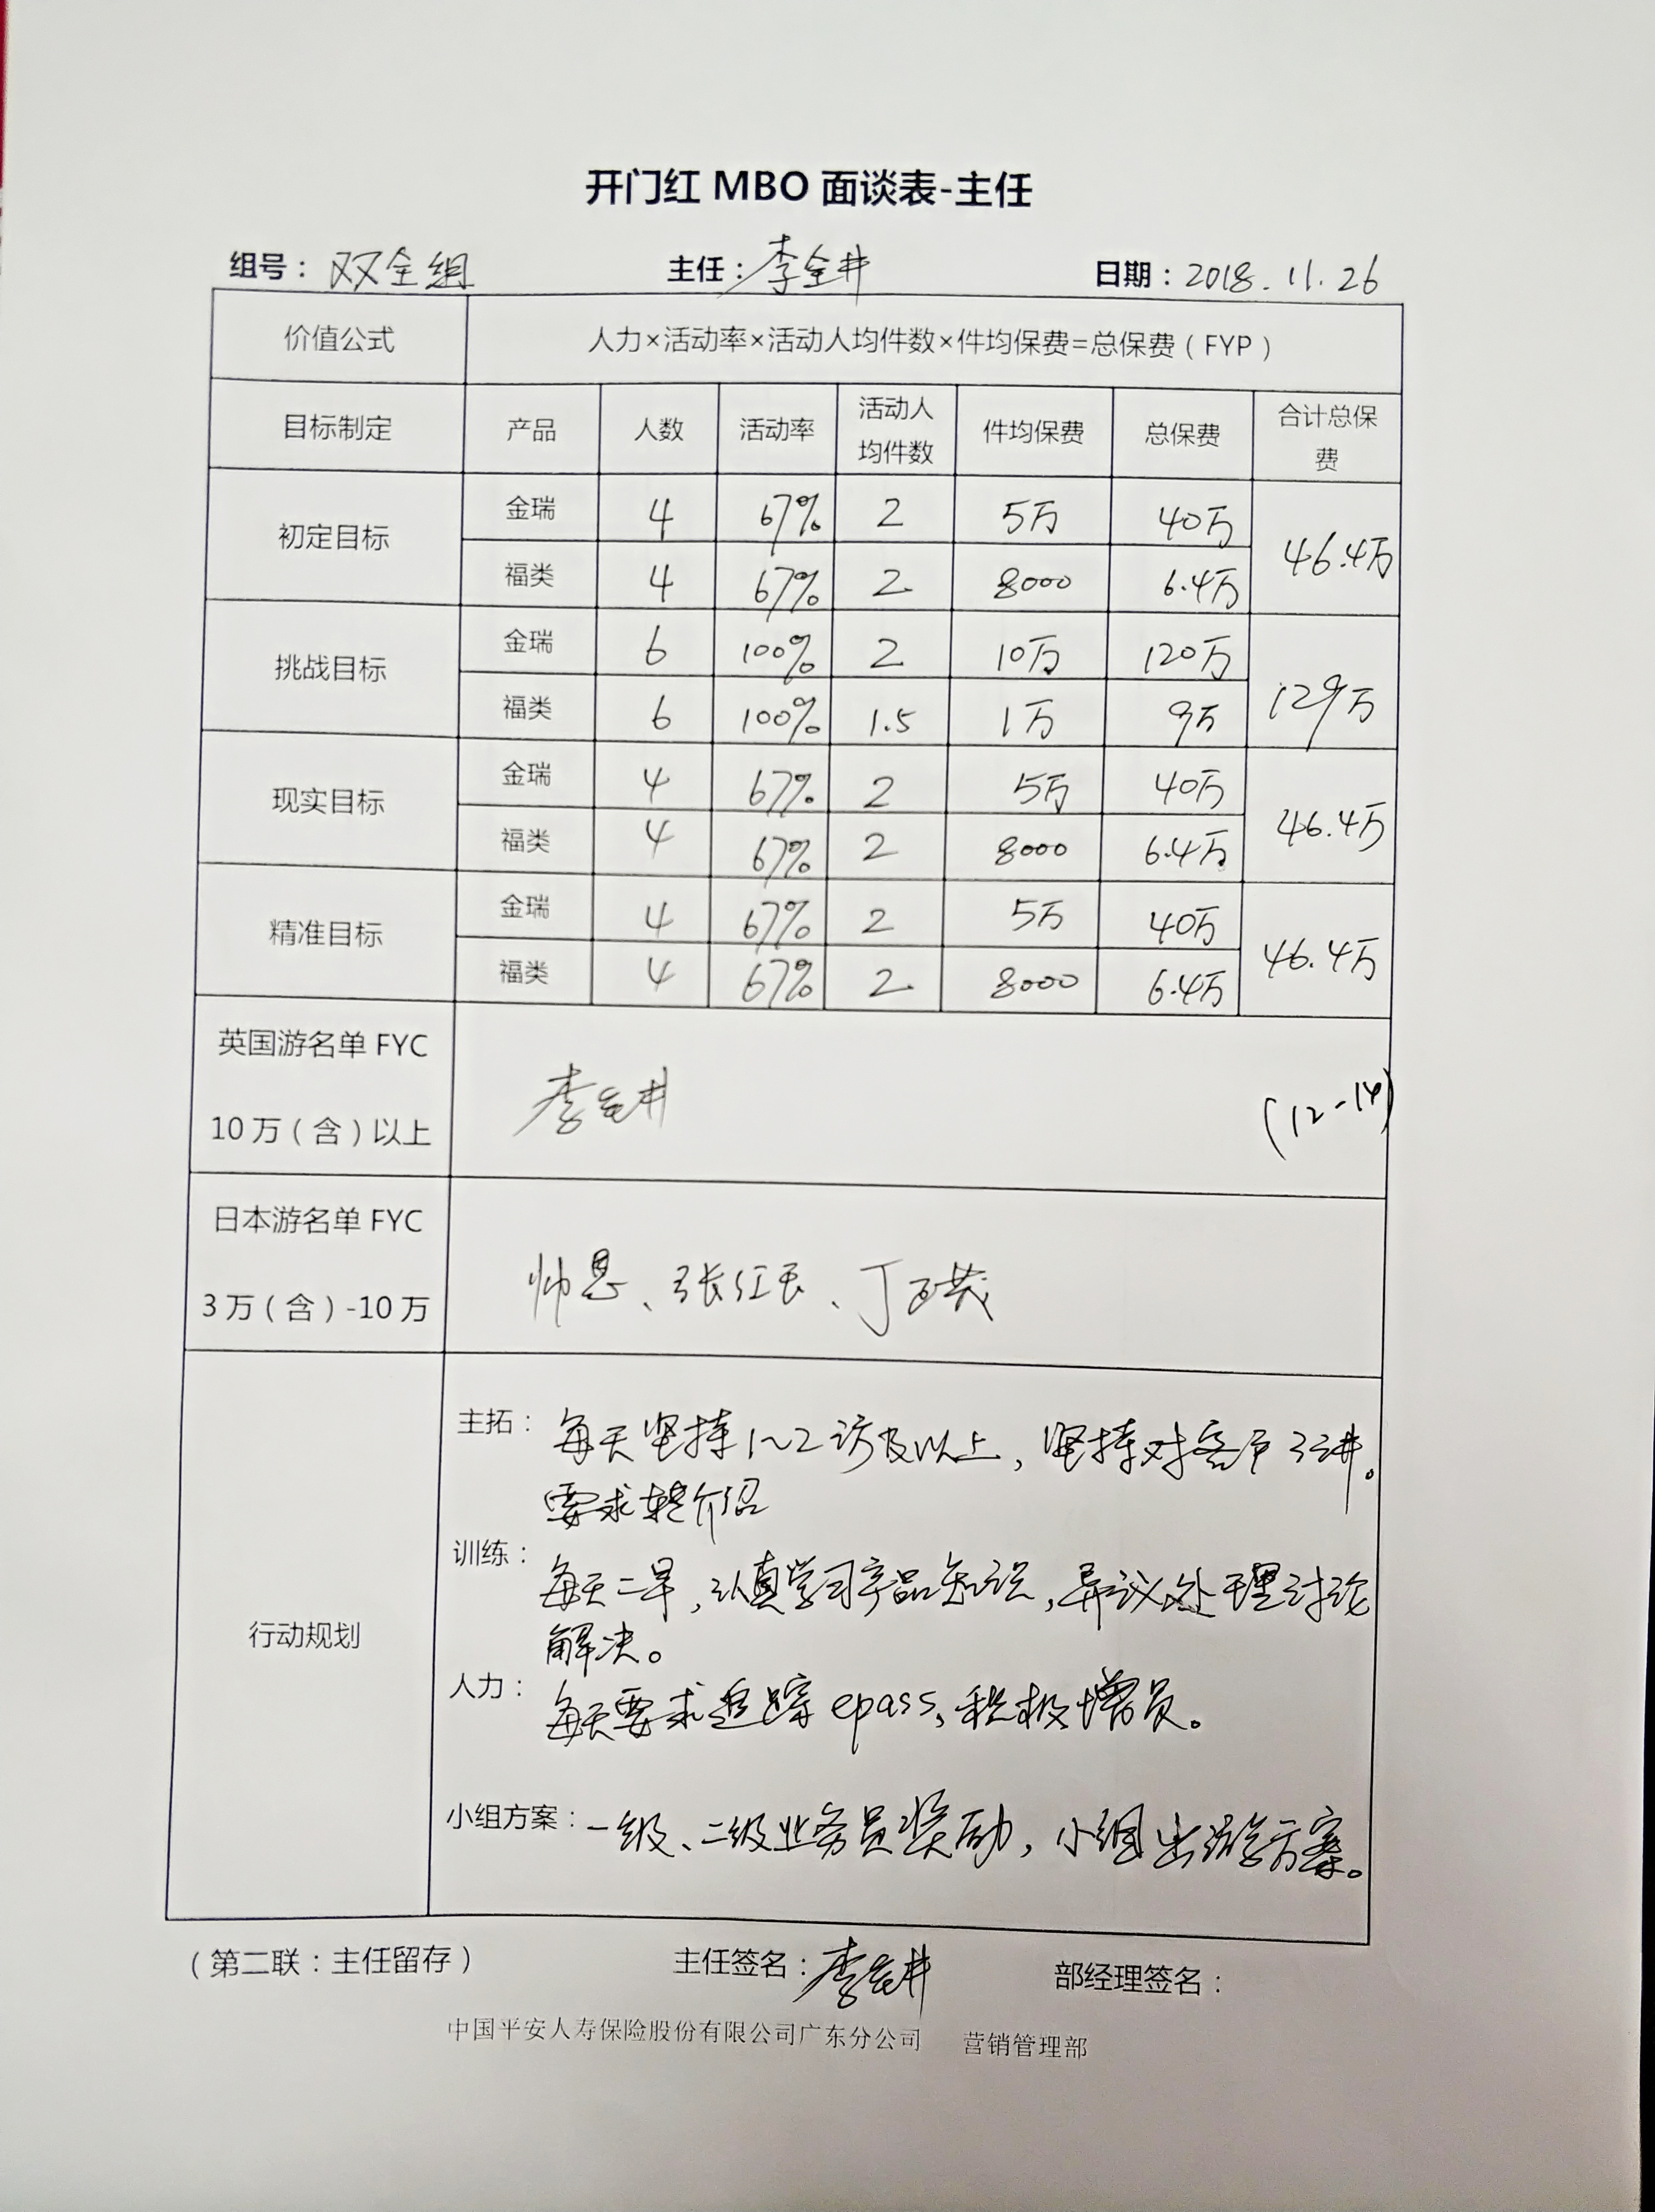 开门红 MBO 面谈表-主任
组号：双全组 主任：李全井 日期：2018.11.26
价值公式 人力×活动率×活动人均件数×件均保费=总保费（FYP）
目标制定 产品 人数 活动率 活动人均件数 件均保费 总保费 合计总保费
初定目标 金瑞 4 67% 2 5万 40万 46.4万
福类 4 67% 2 8000 6.4万
挑战目标 金瑞 6 100% 2 10万 120万 129万
福类 6 100% 1.5 1万 9万
现实目标 金瑞 4 67% 2 5万 40万 46.4万
福类 4 67% 2 8000 6.4万
精准目标 金瑞 4 67% 2 5万 40万 46.4万
福类 4 67% 2 8000 6.4万
英国游名单 FYC
10万（含）以上 李全井 (12-14)
日本游名单 FYC
3万（含）-10万 帅恩、张红、丁
行动规划
主拓：每天坚持1~2访及以上，坚持对客户3讲。
要求转介绍
训练：每天二早，认真学习产品知识，异议处理讨论
解决。
人力：每天要求追踪epass，积极增员。
小组方案：一级、二级业务员奖励，小组出游方案。
（第二联：主任留存） 主任签名：李全井 部经理签名：
中国平安人寿保险股份有限公司广东分公司 营销管理部